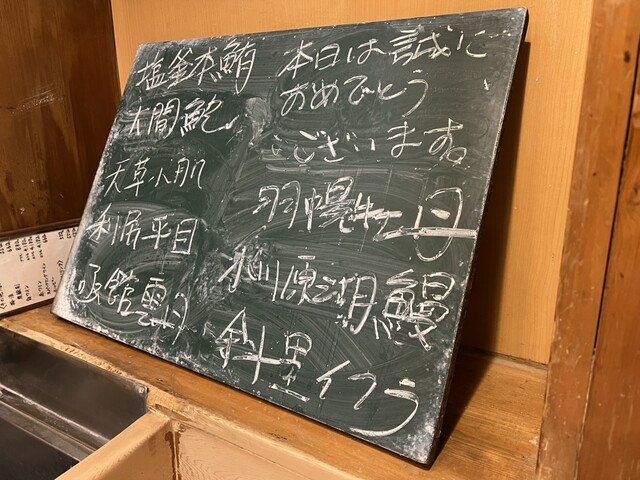 塩釜本鮪
大間鮑
天草小肌
利尻平目
函館雲丹
本日は誠に
おめでとう
ございます。
羽幌牡丹
小川原湖鰻
斜里イクラ